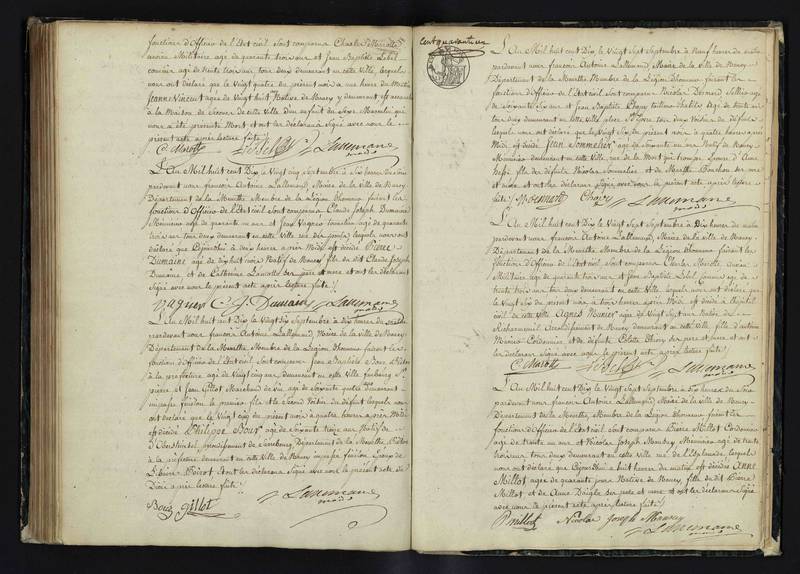 fonctions d'Officier de l'Etat civil sont comparus Charles Marotte
ancien Militaire agé de quarante trois ans et Jean Baptiste Lebel
agé de trente trois ans tous deux demeurant en cette Ville, lesquels
nous ont déclaré que le Vingt quatre du présent mois a une heure du Matin
Jeanne Vineur agée de Vingt huit Native de Nancy y demeurant est accouchée
à la Maison de Secours de cette Ville d'un enfant du Sexe Masculin qui
nous a été présenté Mort et ont les déclarans Signé avec nous le
présent acte après lecture faite
C. Marotte Lebel Lallemand
L'An Mil huit cent Dix le Vingt cinq Septembre à Six heures du soir
pardevant nous françois Antoine Lallemand, Maire de la ville de Nancy
Département de la Meurthe Membre de la Légion d'honneur faisant les
fonctions d'Officier de l'Etat civil sont comparus Claude Joseph Dumaine
Menuisier agé de quarante un ans et Jean Vagner tonnelier agé de quarante
trois ans tous deux demeurant en cette ville lesquels nous ont
déclaré que Cejourdhui à deux heures après Midi est décédé Pierre
Dumaine agé de dix huit mois Natif de Nancy fils du dit Claude Joseph
Dumaine et de Catherine ses père et mère et ont les déclarans
Signé avec nous le présent acte après lecture faite
Vagner C. J. Dumaine Lallemand
L'An Mil huit cent Dix le Vingt Six Septembre à dix heures du matin
pardevant nous françois Antoine Lallemand, Maire de la ville de Nancy
Département de la Meurthe Membre de la Légion d'honneur faisant les
fonctions d'Officier de l'Etat civil sont comparus Jean Baptiste
à la préfecture agé de Vingt cinq ans, demeurant en cette Ville faubourg St
pierre et Jean Gillot Marchand de vin agé de Soixante quatre ans demeurant
impasse féridon le premier fils et le Second Voisin du défunt lesquels nous
ont déclaré que le Vingt cinq du présent mois à quatre heures après Midi
est décédé Philippe Bour agé de Soixante treize ans Natif de
arrondissement de Sarrebourg, Département de la Meurthe
à la préfecture demeurant en cette Ville de Nancy impasse féridon Epoux de
et ont les déclarans Signé avec nous le présent acte de
Décès après lecture faite
Bour Gillot Lallemand
Cent quarante un
L'An Mil huit cent Dix, le Vingt Sept Septembre à Neuf heures du matin
pardevant nous françois Antoine Lallemand Maire de la Ville de Nancy
Département de la Meurthe Membre de la Légion d'honneur faisant les
fonctions d'Officier de l'Etat civil sont comparus Nicolas Bernard Sellier agé
de Soixante Six ans et Jean Baptiste Chapuy agé de trente ans
tous deux demeurant en cette ville place St Jean tous deux Voisins du défunt
lesquels nous ont déclaré que le Vingt Six du présent mois à quatre heures après
Midi est décédé Jean Sommelier agé de Soixante six ans Natif de Nancy
Menuisier demeurant en cette Ville, rue de la Monnaie
fils des défunts Nicolas Sommelier et de Marthe Bouchon ses père
et mère et ont les déclarans Signé avec nous le présent acte après lecture
faite Bernard Chapuy Lallemand
L'An Mil huit cent Dix, le Vingt Sept Septembre à Dix heures du matin
pardevant nous françois Antoine Lallemand, Maire de la ville de Nancy
Département de la Meurthe Membre de la Légion d'honneur faisant les
fonctions d'Officier de l'Etat civil sont comparus Charles Marotte ancien
Militaire agé de quarante trois ans et Jean Baptiste Lebel agé de
trente trois ans tous deux demeurant en cette Ville, lesquels nous ont déclaré que
le Vingt Six du présent mois à trois heures après Midi est décédée à l'hôpital
civil de cette Ville Agnès Munier agée de Vingt Sept ans Native de
Richarmenil Arrondissement de Nancy demeurant en cette ville, fille d'antoine
Munier Cordonnier et de défunte Colette ses père et mère et ont
les déclarans Signé avec nous le présent acte après lecture faite
C. Marotte Lebel Lallemand
L'An Mil huit cent Dix, le Vingt Sept Septembre à Six heures du Soir
pardevant nous françois Antoine Lallemand, Maire de la ville de Nancy
Département de la Meurthe Membre de la Légion d'honneur faisant les
fonctions d'Officier de l'Etat civil sont comparus Pierre Millot Cordonnier
agé de trente un ans et Nicolas Joseph Menuisier agé de trente
trois ans tous deux demeurant en cette Ville rue de l'Esplanade, lesquels
nous ont déclaré que Cejourdhui à huit heures du matin est décédée Anne
Millot agée de quarante jours Native de Nancy, fille du dit Pierre
Millot et de Anne Daigle ses père et mère et ont les déclarans Signé
avec nous le présent acte après lecture faite
P. Millot Nicolas Joseph Lallemand